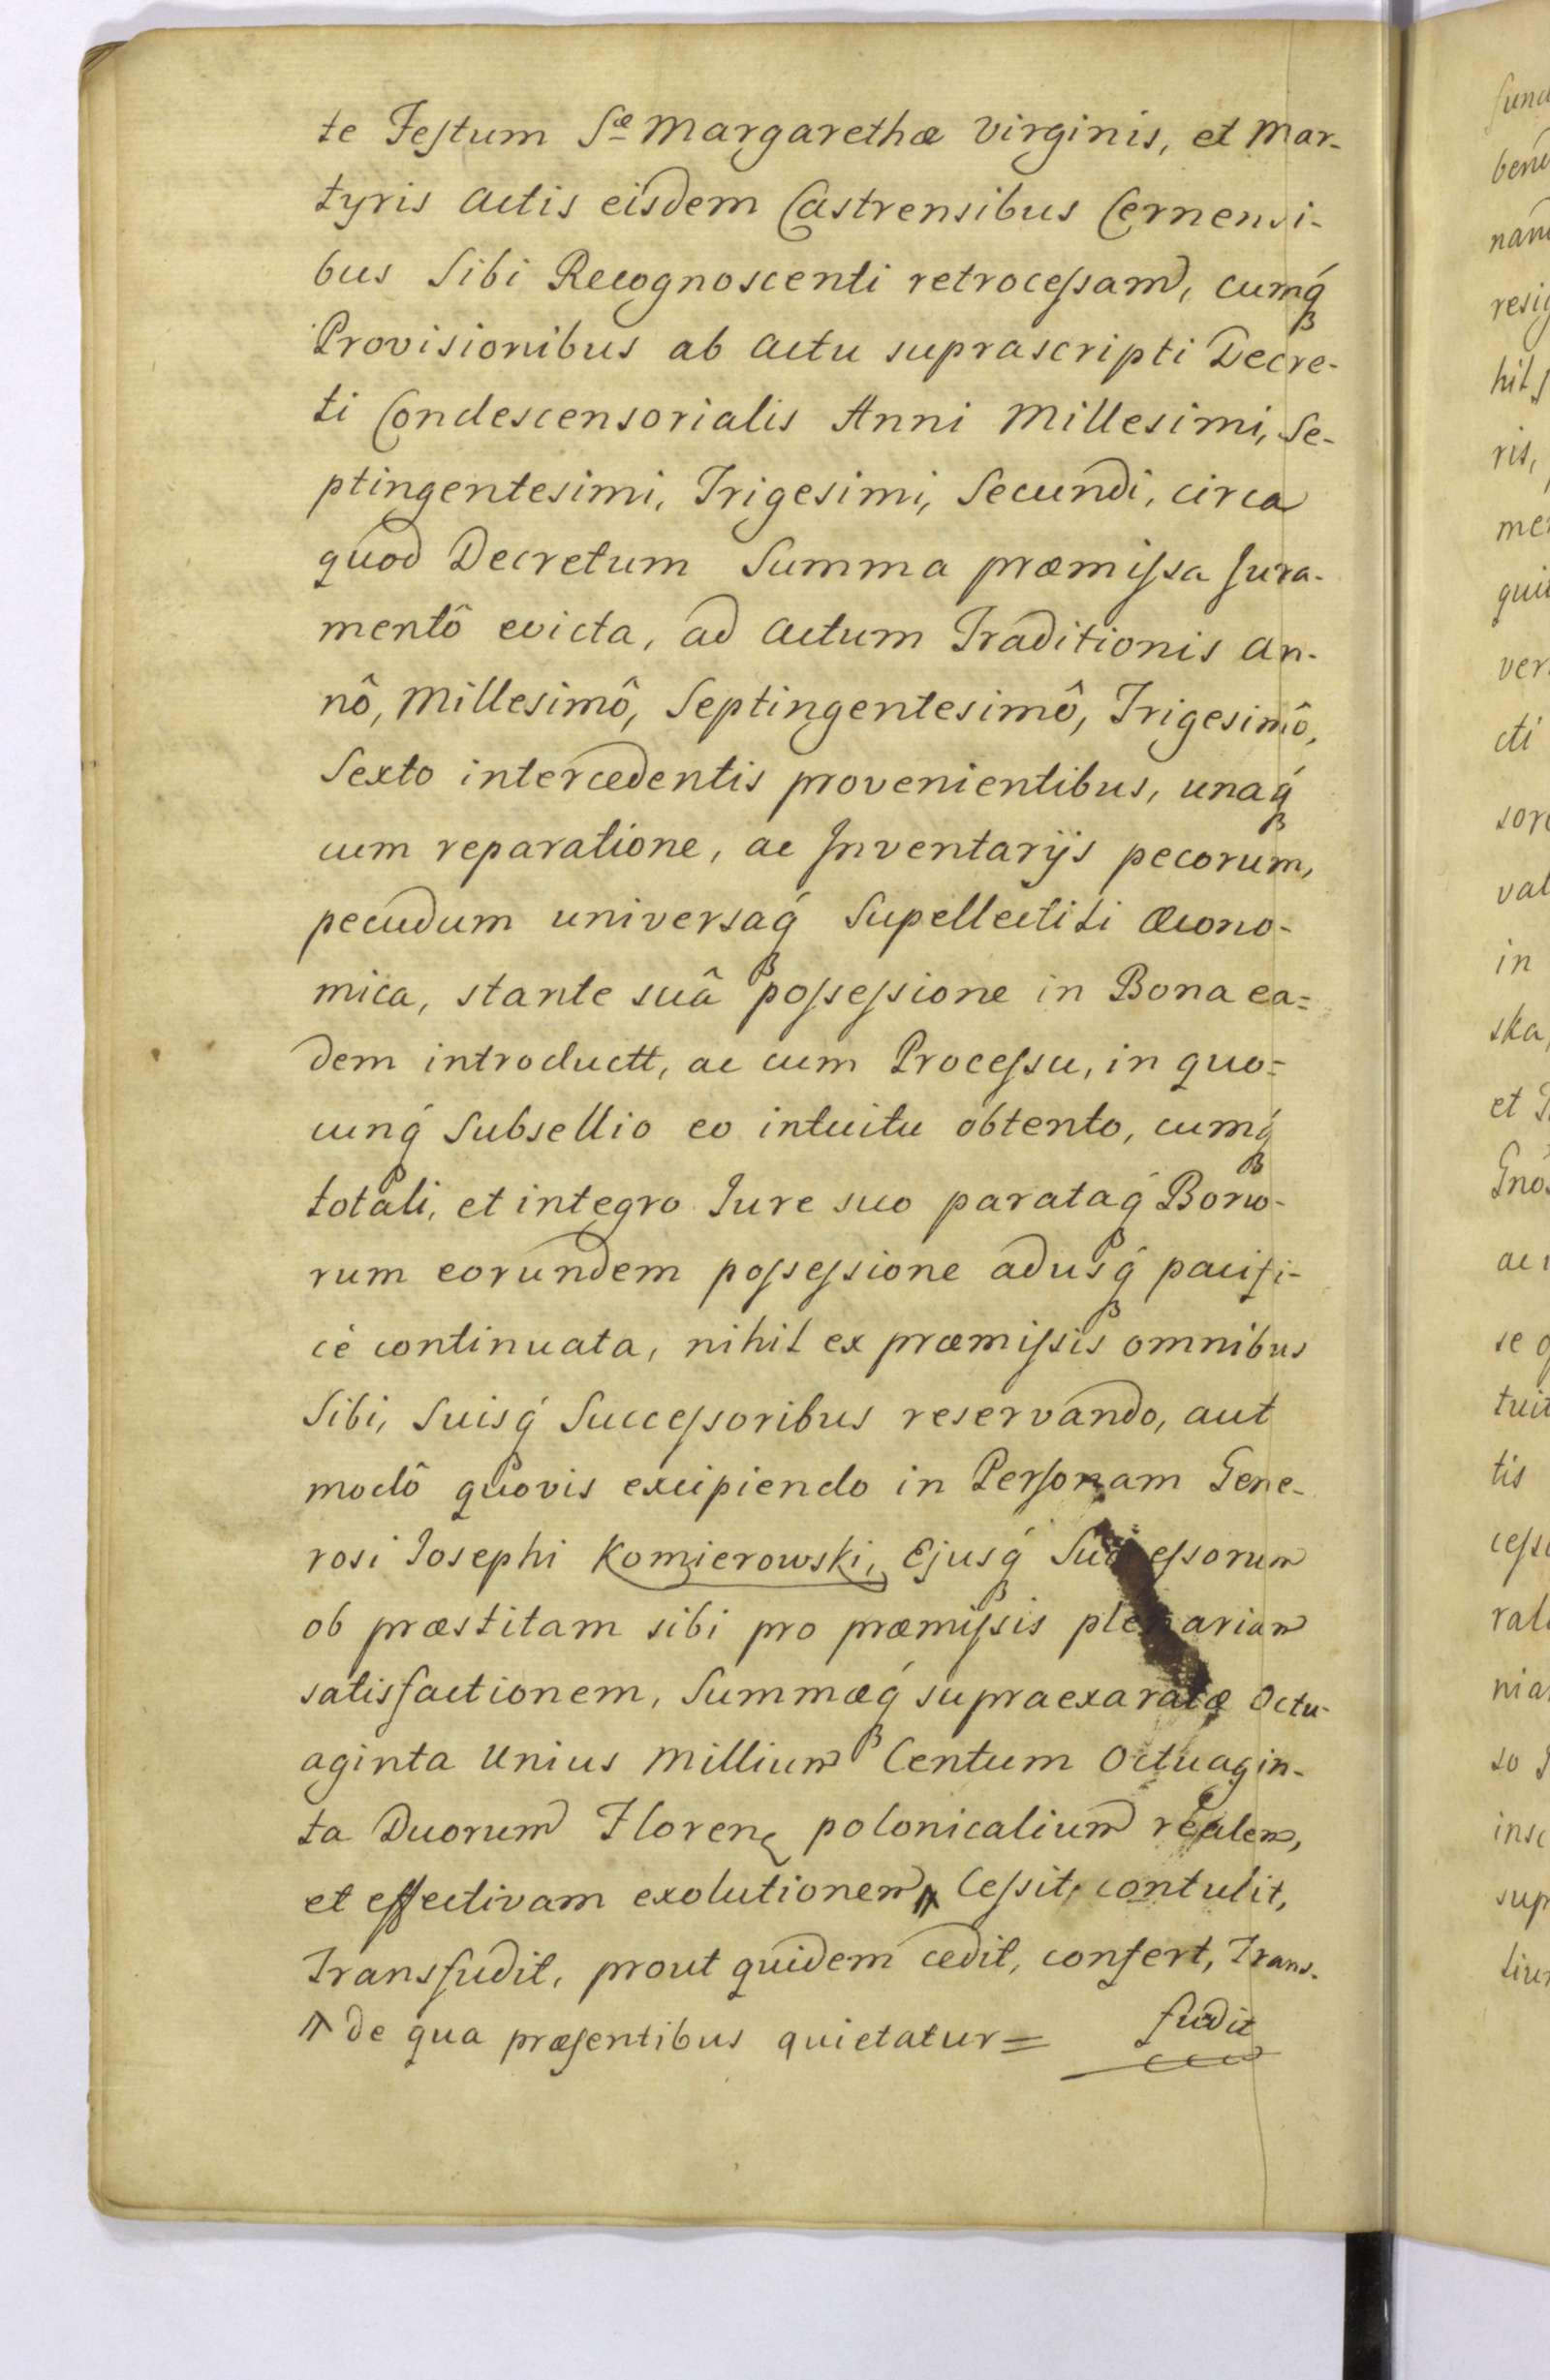 te Festum Sæ Margarethæ Virginis, et Mar-
tyris Actis eisdem Castrensibus Cernensi-
bus Sibi Recognoscenti retrocessam, cumq́
Provisionibus ab Actu suprascripti Decre-
ti Condescensorialis Anni Millesimi, Se-
ptingentesimi, Trigesimi, Secundi, circa
quod Decretum Summa præmissa Jura-
mentô evicta, ad Actum Traditionis An-
nô, Millesimô, Septingentesimô, Trigesimô,
Sexto intercedentis provenientibus, unaq́
cum reparatione, ac Inventarijs pecorum,
pecudum universaq́ Supellectili Œcono-
mica, stante suâ possessione in Bona ea=
dem introductt, ac cum Processu, in quo=
cunq́ Subsellio eo intuitu obtento, cumq́
totali, et integro Jure suo parataq́ Bono-
rum eorundem possessione adusq́ pacifi-
cè continuata, nihil ex præmissis omnibus
Sibi, Suisq́ Successoribus reservando, aut
modô quovis excipiendo in Personam Gene-
rosi Josephi Komierowski, Ejusq́ Successorum
ob præstitam sibi pro præmissis plenariam
satisfactionem, Summæq́ supraexaratæ Octu-
aginta Unius Millium Centum Octuagin-
ta Duorum Floren polonicalium realem,
et effectivam exolutionem ⩕ Cessit, contulit,
Transfudit, prout quidem cedit, confert, Trans-
⩕ de qua præsentibus quietatur = fudit